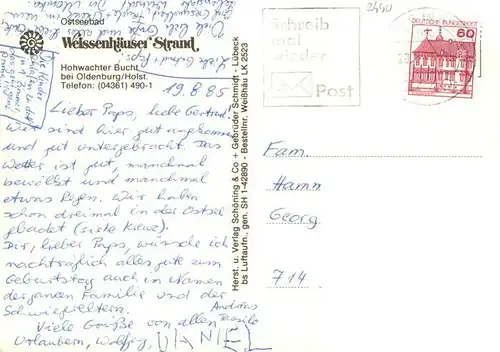 Ostseebad
Weissenhäuser Strand
Hohwachter Bucht
bei Oldenburg/Holst.
Telefon: (04361) 490-1
19.8.85
Lieber Paps, liebe Gertrud!
Wir sind hier gut angekommen
und gut untergebracht. Das
Wetter ist gut, manchmal
bewölkt und manchmal
etwas Regen. Wir haben
schon dreimal in der Ostsee
gebadet (siehe Kreuz).
Dir, lieber Paps, wünsche ich
nachträglich alles gute zum
Geburtstag auch im Namen
der ganzen Familie und der
Schwiegereltern.
Viele Grüße von allen
Urlaubern, Wolfgang,
Andreas
Tassilo
DANIEL
Herst. u. Verlag Schöning & Co + Gebrüder Schmidt, Lübeck
bs Luftaufn., gen. SH 1-42890 - Bestellnr. Weißhäu LK 2523
2440
Schreib
mal
wieder
Post
DEUTSCHE BUNDESPOST
60
Fam.
Hamn
Georg
714